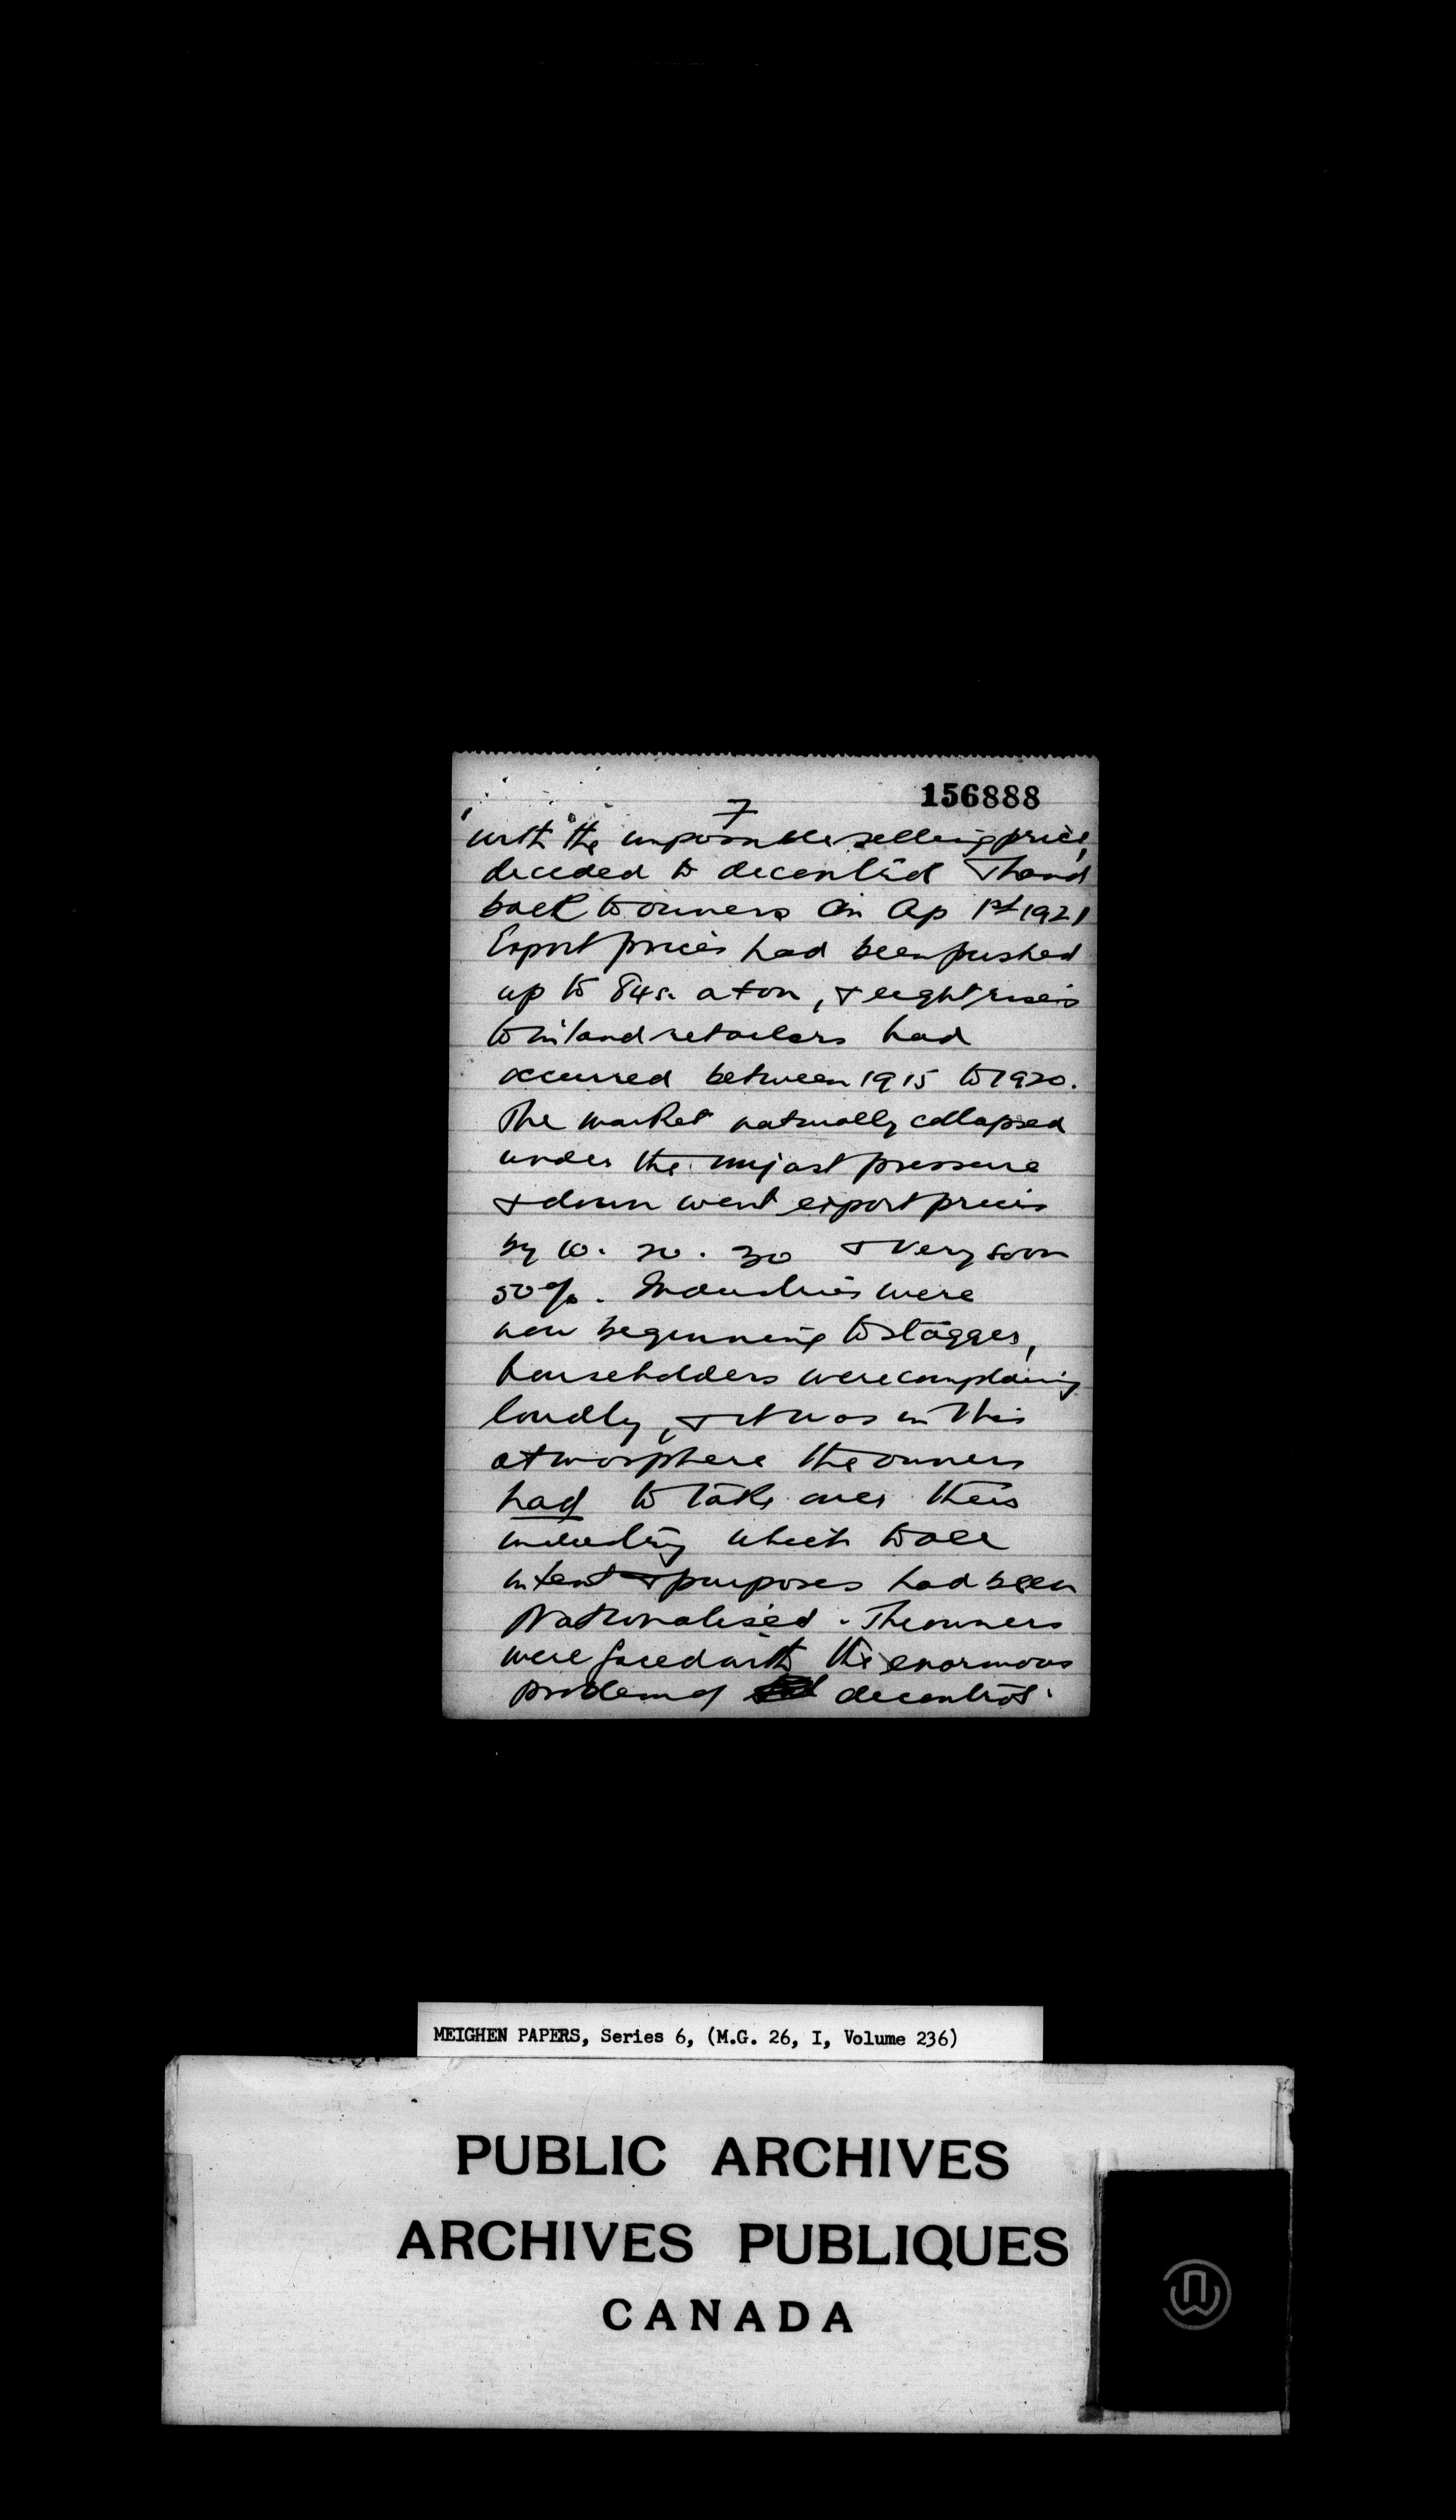 156888
7
with the impossible selling price,
decided to decontrol & hand
back to owners on Ap 1st 1921
Export prices had been pushed
up to 84s. a ton, & eight rises
to inland retailers had
occurred between 1915 to 1920.
The market naturally collapsed
under the unjust pressure
& down went export prices
by 10. 20. 30 & very soon
50%. Industries were
now beginning to stagger,
householders were complaining
loudly, & it was in this
atmosphere the owners
had to take over their
industry which to all
intent & purposes had been
Nationalised. The owners
were faced with the enormous
problem of decontrol.
MEIGHEN PAPERS, Series 6, (M.G. 26, I, Volume 236)
PUBLIC ARCHIVES
ARCHIVES PUBLIQUES
CANADA